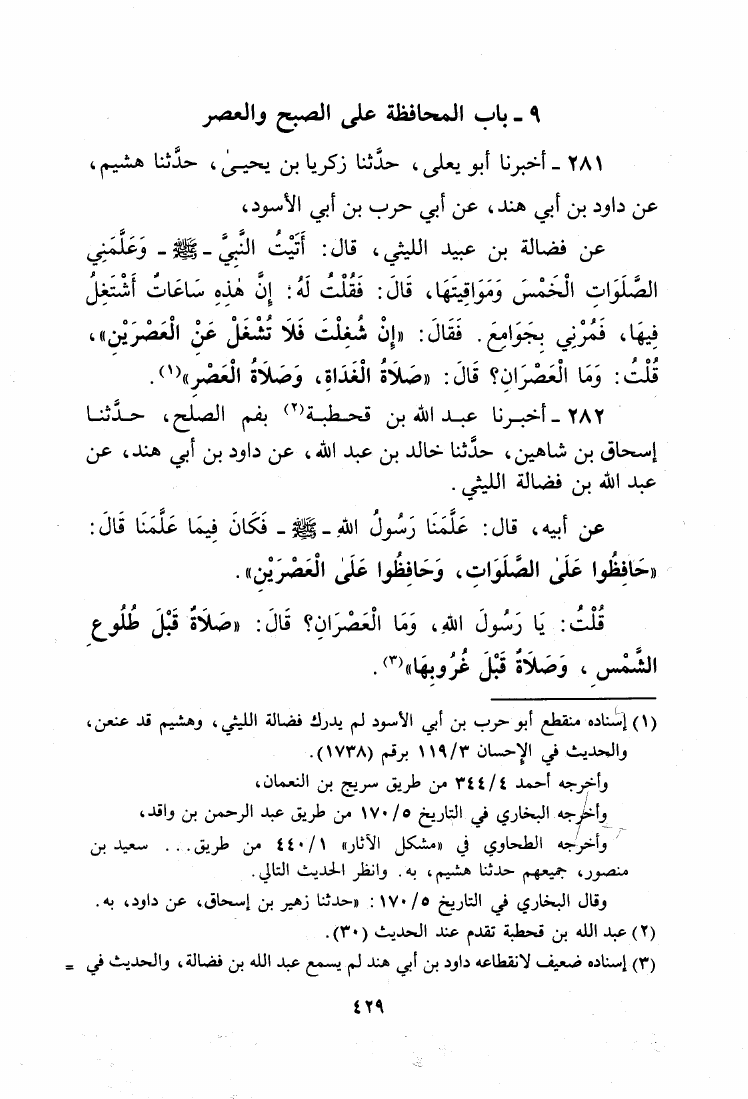 ٩ - باب المحافظة على الصبح والعصر
٢٨١ - أخبرنا أبو يعلى، حدَّثنا زكريا بن يحيىٰ، حدَّثنا هشيم،
عن داود بن أبي هند، عن أبي حرب بن أبي الأسود،
عن فضالة بن عبيد الليثي، قال: أَتَيْتُ النَّبِيَّ - ﷺ - وَعَلَّمَنِي
الصَّلَوَاتِ الْخَمْسَ وَمَوَاقِيتَهَا، قَالَ: فَقُلْتُ لَهُ: إِنَّ هٰذِهِ سَاعَاتٌ أَشْتَغِلُ
فِيهَا، فَمُرْنِي بِجَوَامِعَ. فَقَالَ: «إِنْ شُغِلْتَ فَلَا تُشْغَلْ عَنْ الْعَصْرَيْنِ»،
قُلْتُ: وَمَا الْعَصْرَانِ؟ قَالَ: «صَلَاةُ الْغَدَاةِ، وَصَلَاةُ الْعَصْرِ»(١).
٢٨٢ - أخبرنا عبد الله بن قحطبة(٢) بفم الصلح، حدَّثنا
إسحاق بن شاهين، حدَّثنا خالد بن عبد الله، عن داود بن أبي هند، عن
عبد الله بن فضالة الليثي.
عن أبيه، قال: عَلَّمَنَا رَسُولُ اللهِ - ﷺ - فَكَانَ فِيمَا عَلَّمَنَا قَالَ:
«حَافِظُوا عَلَىٰ الصَّلَوَاتِ، وَحَافِظُوا عَلَىٰ الْعَصْرَيْنِ».
قُلْتُ: يَا رَسُولَ اللهِ، وَمَا الْعَصْرَانِ؟ قَالَ: «صَلَاةٌ قَبْلَ طُلُوعِ
الشَّمْسِ، وَصَلَاةٌ قَبْلَ غُرُوبِهَا»(٣).
(١) إسناده منقطع أبو حرب بن أبي الأسود لم يدرك فضالة الليثي، وهشيم قد عنعن،
والحديث في الإحسان ١١٩/٣ برقم (١٧٣٨).
وأخرجه أحمد ٣٤٤/٤ من طريق سريج بن النعمان،
وأخرجه البخاري في التاريخ ١٧٠/٥ من طريق عبد الرحمن بن واقد،
وأخرجه الطحاوي في «مشكل الآثار» ٤٤٠/١ من طريق... سعيد بن
منصور، جميعهم حدثنا هشيم، به. وانظر الحديث التالي.
وقال البخاري في التاريخ ١٧٠/٥: «حدثنا زهير بن إسحاق، عن داود، به.
(٢) عبد الله بن قحطبة تقدم عند الحديث (٣٠).
(٣) إسناده ضعيف لانقطاعه داود بن أبي هند لم يسمع عبد الله بن فضالة، والحديث في =
٤٢٩